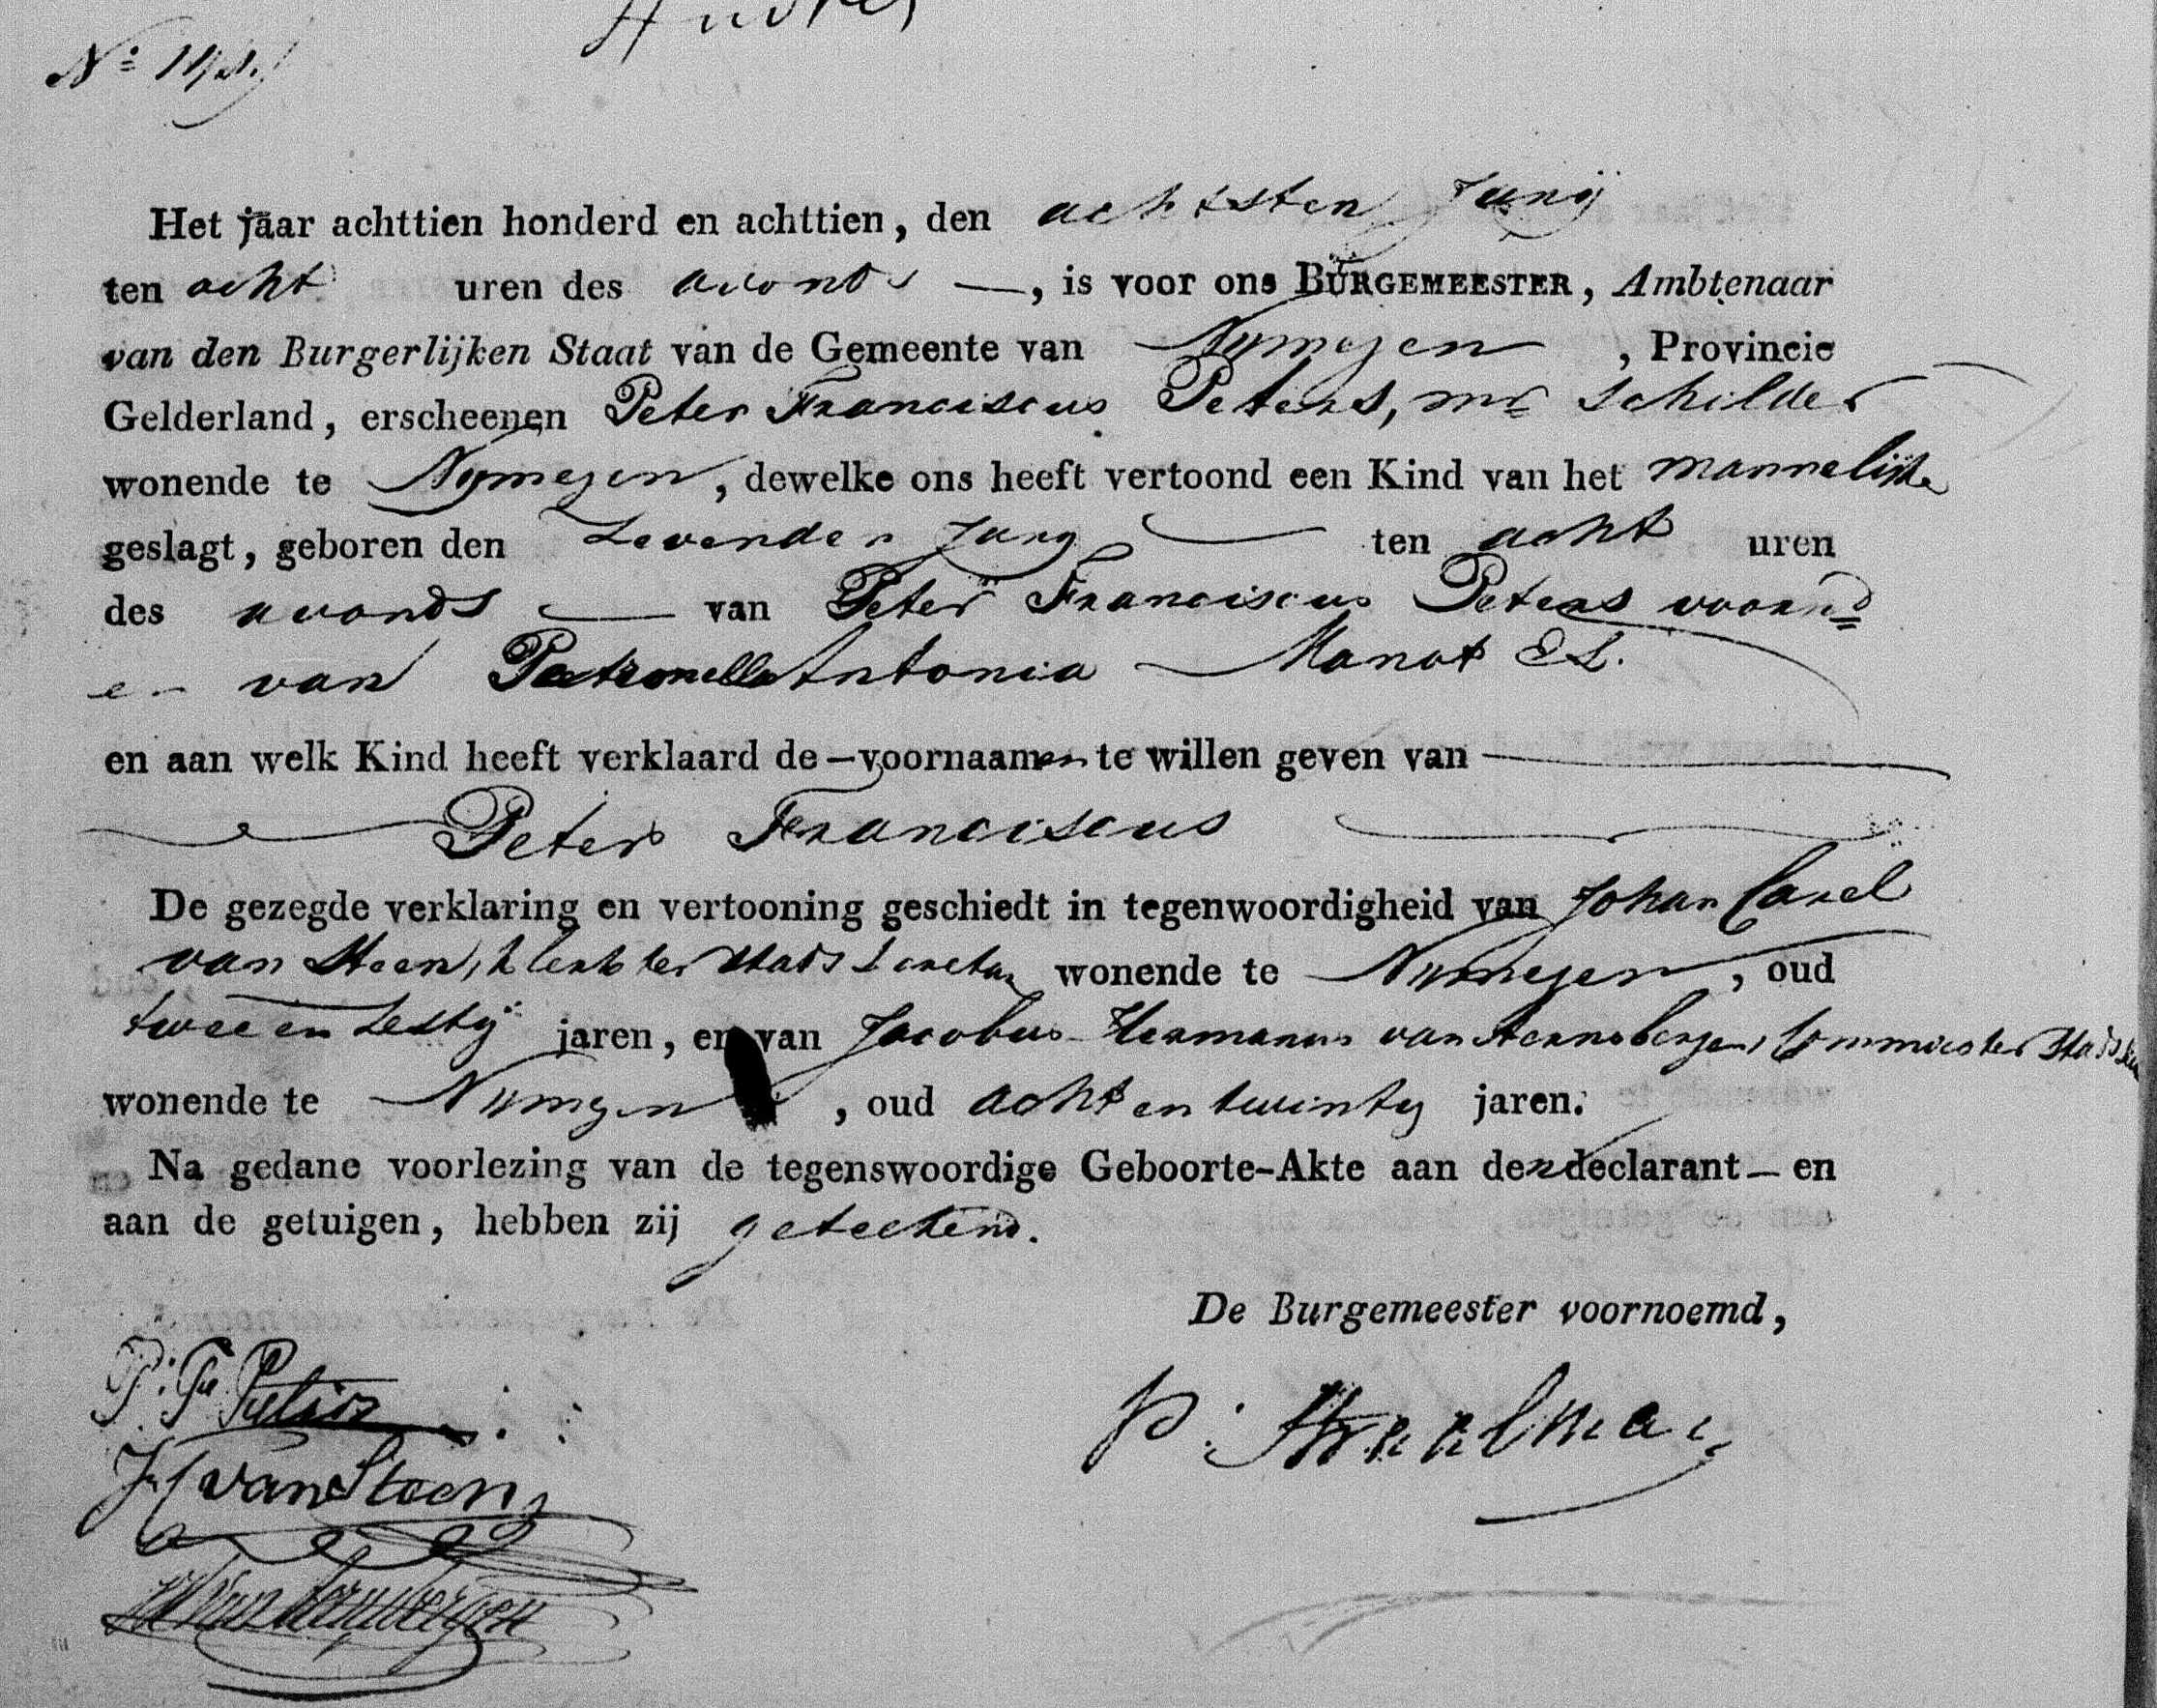 Het jaar achttien honderd en achttien, den achtsten Junij
ten acht uren des avonds —, is voor ons BURGEMEESTER, Ambtenaar
van den Burgerlijken Staat van de Gemeente van Nymegen, Provincie
Gelderland, erscheenen Peter Franciscus Peters, mr schilder
wonende te Nymegen, dewelke ons heeft vertoond een Kind van het mannelijke
geslagt, geboren den Zevenden Juny — ten acht uren
des avonds — van Peter Franciscus Peters voornd
en van Petronella Antonia Manot EL.
en aan welk Kind heeft verklaard de—voornaamen te willen geven van —
Peter Franciscus
De gezegde verklaring en vertooning geschiedt in tegenwoordigheid van Johan Carel
van Steen, klerk ter stads wonende te Nymegen, oud
twee en zestig jaren, en van Jacobus Hermanus van ter
wonende te Nymegen, oud acht en twintig jaren.
Na gedane voorlezing van de tegenswoordige Geboorte-Akte aan den declarant — en
aan de getuigen, hebben zij geteekend.
De Burgemeester voornoemd,
P. F. Peters
van Steen